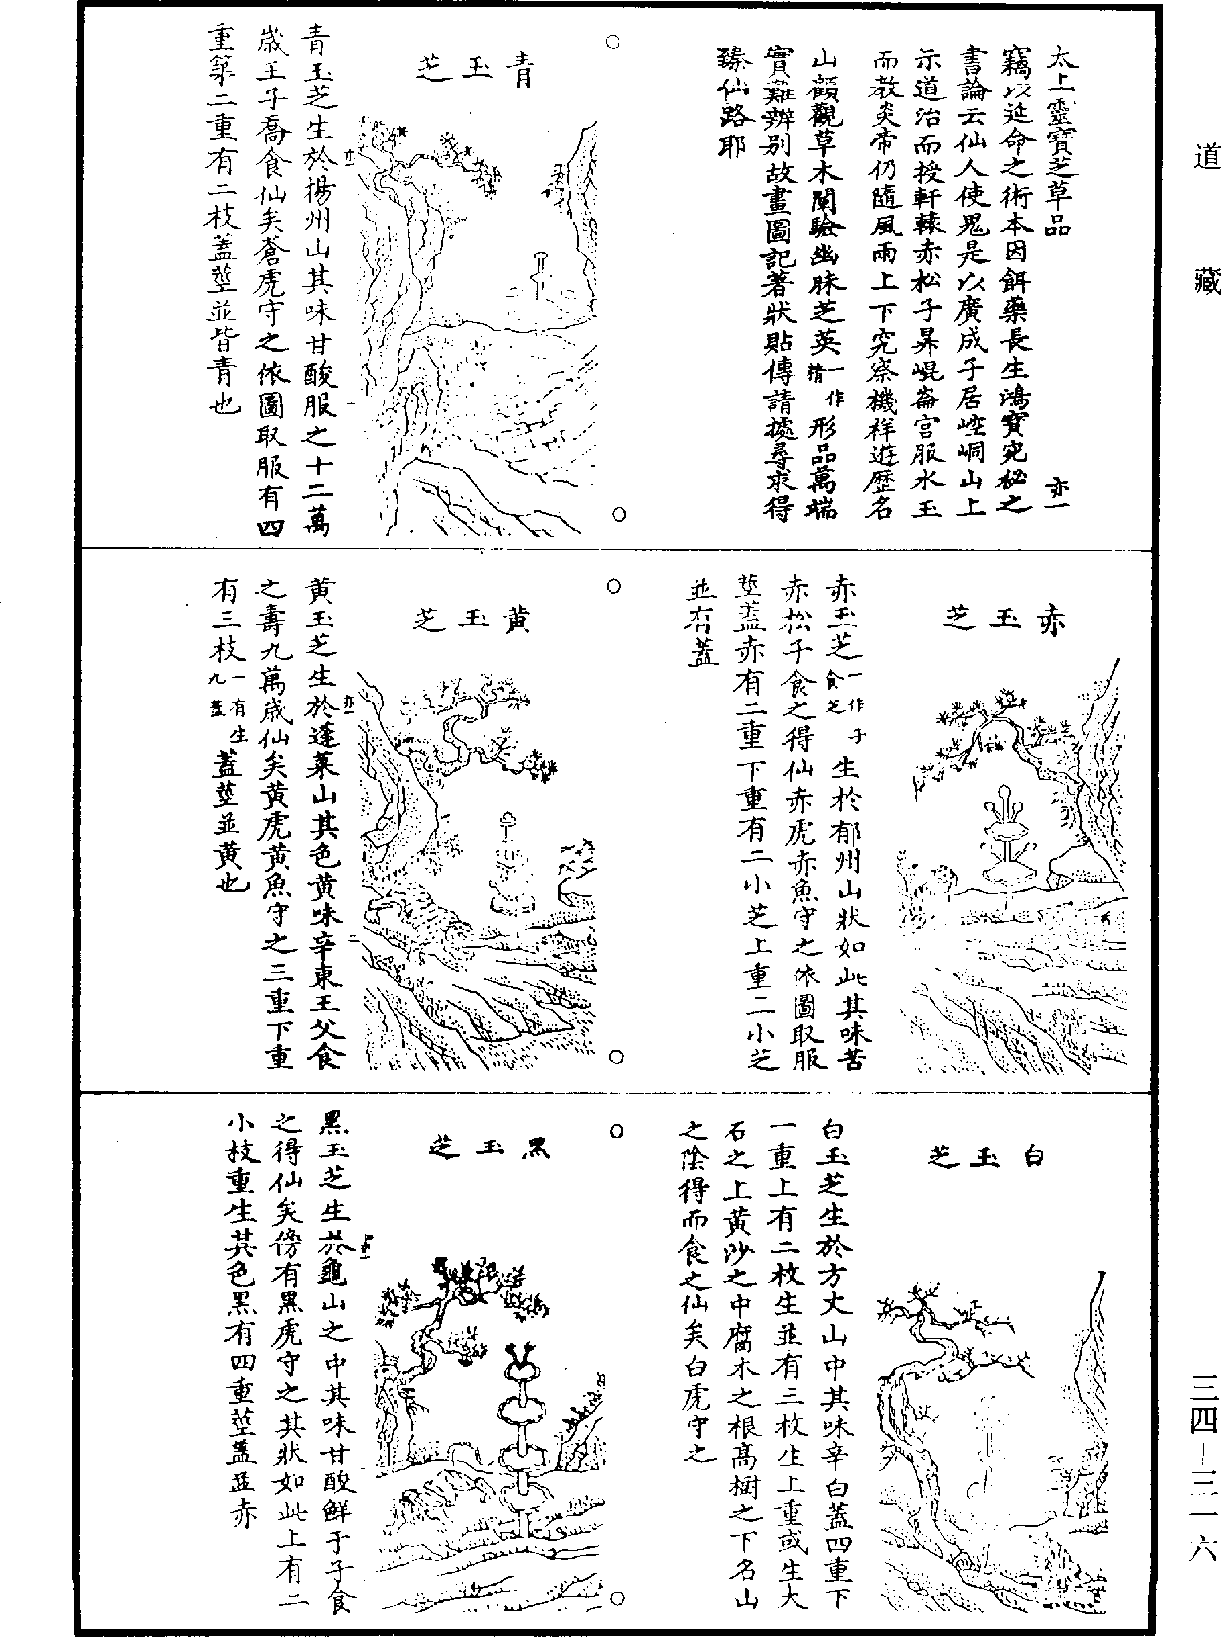 道藏
三四－三一六
太上靈寶芝草品
亦一
竊以延命之術本因餌藥長生鴻寶宛秘之
書論云仙人使鬼是以廣成子居崆峒山上
示道治而授軒轅赤松子昇崐崙宫服水玉
而教炎帝仍隨風雨上下究察機祥遊歷名
山觀草木闡驗幽昧芝英一作精形品萬端
實難辨别故畫圖記著狀貼傳請據尋求得
臻仙路耶
青玉芝
青玉芝生於揚州山其味甘酸服之十二萬
歲王子喬食仙矣蒼虎守之依圖取服有四
重第二重有二枝蓋莖並皆青也
赤玉芝
赤玉芝一作于食芝生於郁州山狀如此其味苦
赤松子食之得仙赤虎赤魚守之依圖取服
莖蓋赤有二重下重有二小芝上重二小芝
並有蓋
黄玉芝
黄玉芝生於蓬萊山其色黄味辛東王父食
之壽九萬歲仙矣黄虎黄魚守之三重下重
有三枝一有生九蓋蓋莖並黄也
白玉芝
白玉芝生於方丈山中其味辛白蓋四重下
一重上有二枚生並有三枚生上重或生大
石之上黄沙之中腐木之根高樹之下名山
之陰得而食之仙矣白虎守之
黑玉芝
黑玉芝生於龜山之中其味甘酸鮮于子食
之得仙矣傍有黑虎守之其狀如此上有二
小枝重生其色黑有四重莖蓋並赤